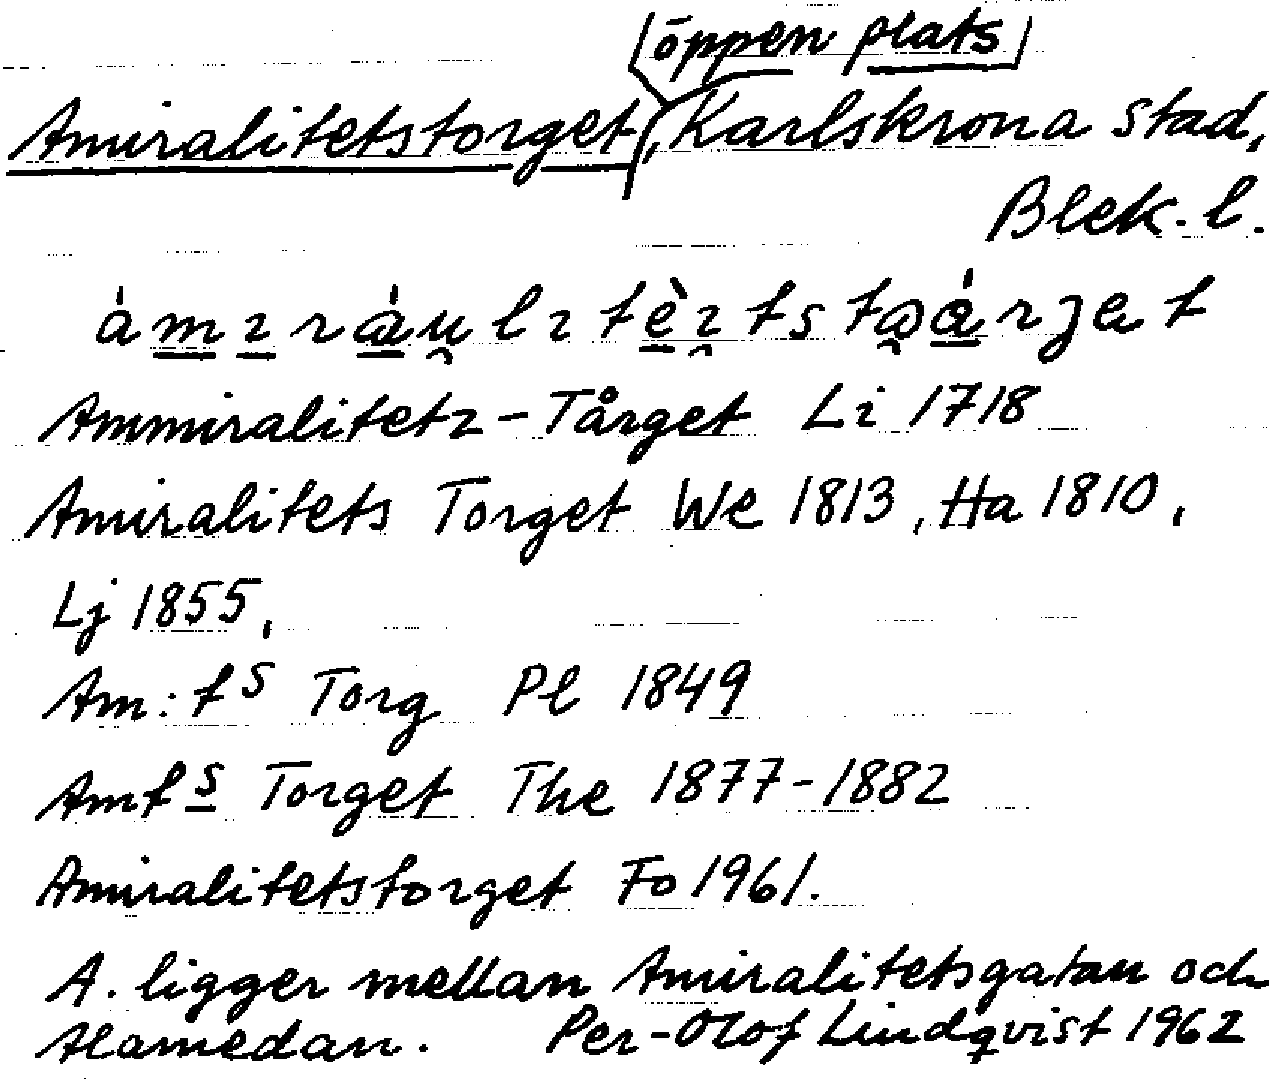 öppen plats
Amiralitetstorget, Karlskrona stad,
Blek. l.
Ammiralitetz-Tårget Li 1718
Amiralitets Torget We 1813, Ha 1810,
Lj 1855,
Am:tˢ Torg Pl 1849
Amtˢ Torget The 1877-1882
Amiralitetstorget Fo 1961.
A. ligger mellan Amiralitetsgatan och
Alamedan. Per-Olof Lindqvist 1962